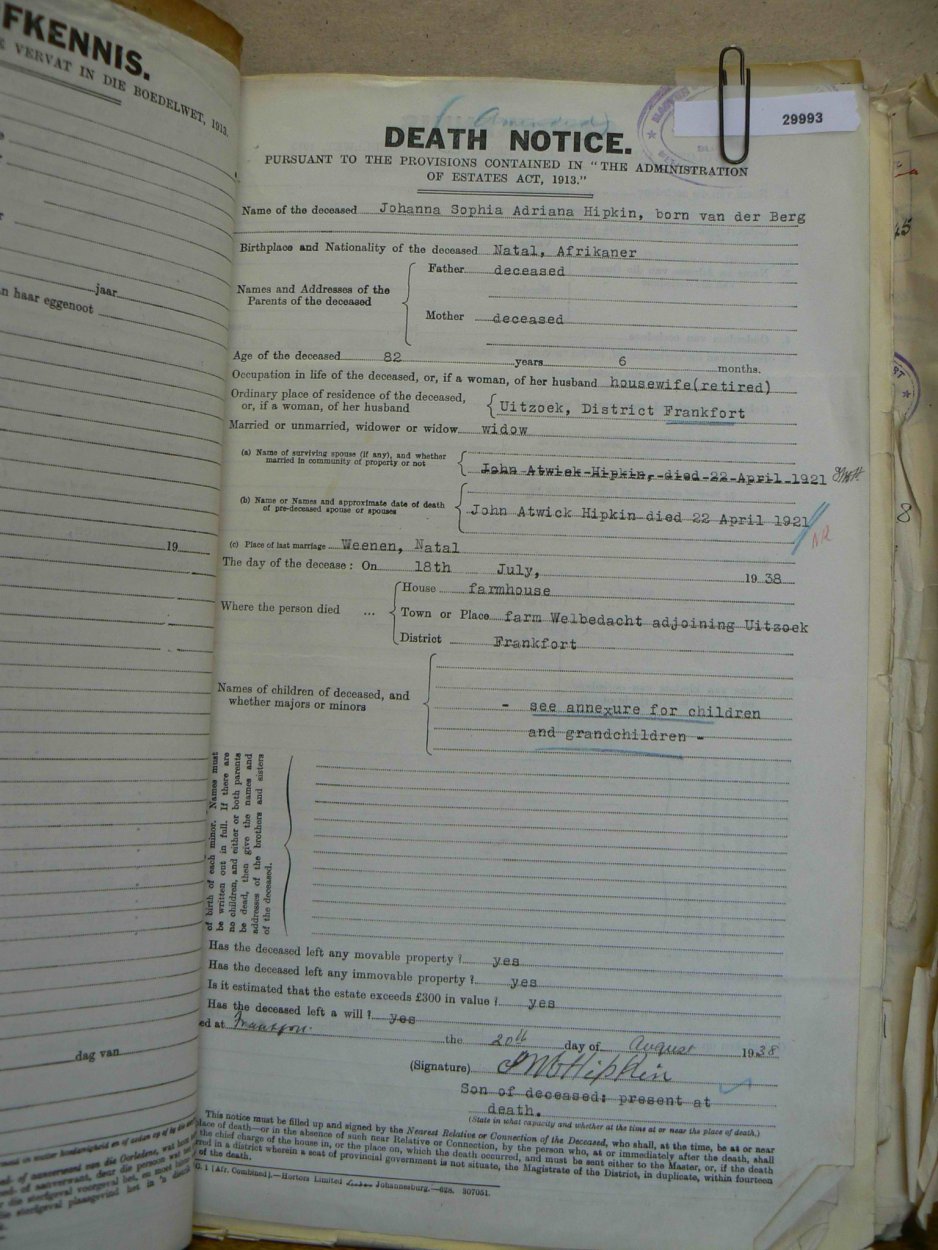 FKENNIS.
VERVAT IN DIE BOEDELWET, 1913.
jaar
haar eggenoot
19
dag van
29993
(Amended)
DEATH NOTICE.
PURSUANT TO THE PROVISIONS CONTAINED IN "THE ADMINISTRATION
OF ESTATES ACT, 1913."
Name of the deceased Johanna Sophia Adriana Hipkin, born van der Berg
Birthplace and Nationality of the deceased Natal, Afrikaner
Names and Addresses of the Parents of the deceased
Father deceased
Mother deceased
Age of the deceased 82 years 6 months.
Occupation in life of the deceased, or, if a woman, of her husband housewife(retired)
Ordinary place of residence of the deceased,
or, if a woman, of her husband Uitzoek, District Frankfort
Married or unmarried, widower or widow widow
(a) Name of surviving spouse (if any), and whether
married in community of property or not John Atwick Hipkin, died 22 April 1921
(b) Name or Names and approximate date of death
of pre-deceased spouse or spouses John Atwick Hipkin died 22 April 1921
(c) Place of last marriage Weenen, Natal
The day of the decease: On 18th July, 1938
Where the person died ...
House farmhouse
Town or Place farm Welbedacht adjoining Uitzoek
District Frankfort
Names of children of deceased, and
whether majors or minors
- see annexure for children
and grandchildren -
of birth of each minor. Names must
be written out in full. If there are
no children, and either or both parents
be dead, then give the names and
addresses of the brothers and sisters
of the deceased.
Has the deceased left any movable property? yes
Has the deceased left any immovable property? yes
Is it estimated that the estate exceeds £300 in value? yes
Has the deceased left a will? yes
ed at Frankfort the 20th day of August 1938
(Signature) Hipkin
Son of deceased; present at
death.
(State in what capacity and whether at the time at or near the place of death.)
This notice must be filled up and signed by the Nearest Relative or Connection of the Deceased, who shall, at the time, be at or near
place of death—or in the absence of such near Relative or Connection, by the person who, at or immediately after the death, shall
the chief charge of the house in, or the place on, which the death occurred, and must be sent either to the Master, or, if the death
red in a district wherein a seat of provincial government is not situate, the Magistrate of the District, in duplicate, within fourteen
of the death.
G. 1 (Afr. Combined).—Hortors Limited Johannesburg.—628. 307051.
8